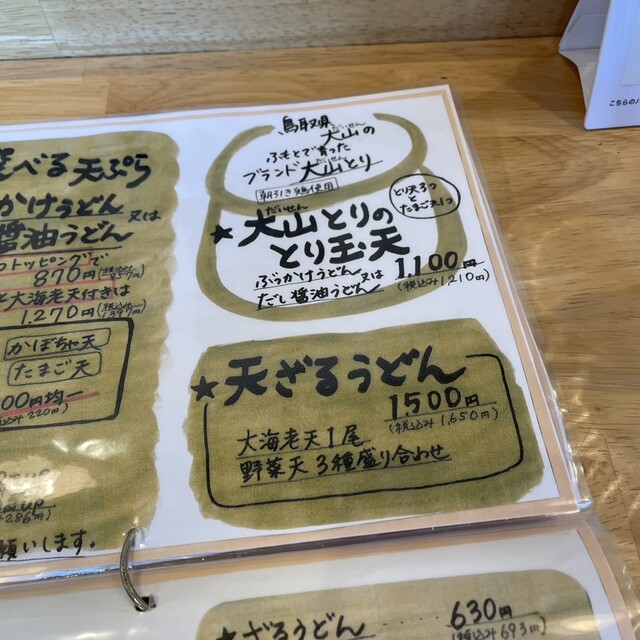 こちらの
べる天ぷら
かけうどん 又は
醤油うどん
トッピングで
870円
大海老天付きは
1,270円
かぼちゃ天
たまご天
00円均一
込み220円)
286円)
願いします。
鳥取県 大山の
だいせん
ふもとで育った
だいせん
ブランド大山どり
朝引き鶏使用
とり天3つ
と
たまご天1つ
だいせん
★大山とりの
とり玉天
ぶっかけうどん 又は
だし醤油うどん
1,100円
(税込み1,210円)
★天ざるうどん
1,500円
(税込み1,650円)
大海老天1尾
野菜天3種盛り合わせ
★ざるうどん
630円
(税込み693円)